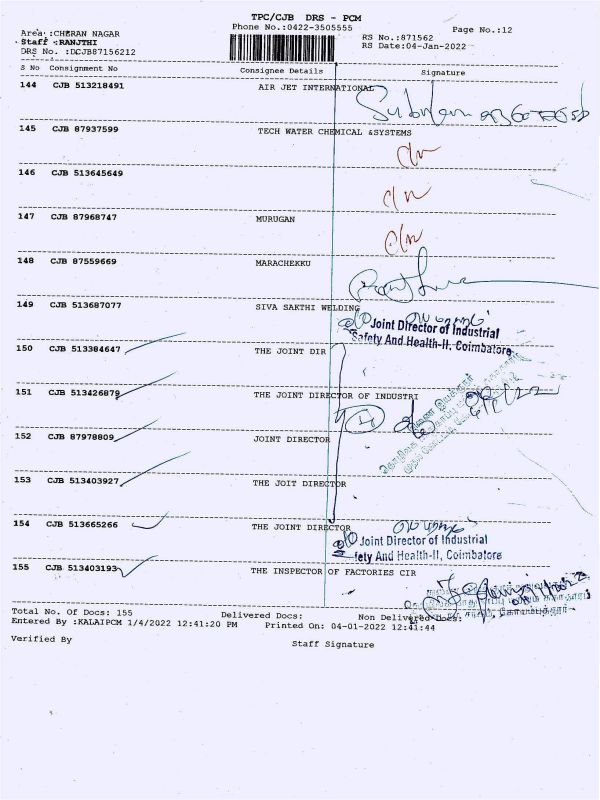 TPC/CJB DRS - PCM
Phone No.:0422-3505555
Page No.:12
Area :CHERAN NAGAR
Staff :RANJTHI
DRS No. :DCJB87156212
RS No.:871562
RS Date:04-Jan-2022
S No Consignment No Consignee Details Signature
144 CJB 513218491 AIR JET INTERNATIONAL
145 CJB 87937599 TECH WATER CHEMICAL &SYSTEMS
146 CJB 513645649
147 CJB 87968747 MURUGAN
148 CJB 87559669 MARACHEKKU
149 CJB 513687077 SIVA SAKTHI WELDING
Joint Director of Industrial
Safety And Health-II, Coimbatore
150 CJB 513384647 THE JOINT DIR
151 CJB 513426879 THE JOINT DIRECTOR OF INDUSTRI
152 CJB 87978809 JOINT DIRECTOR
153 CJB 513403927 THE JOIT DIRECTOR
154 CJB 513665266 THE JOINT DIRECTOR
Joint Director of Industrial
fety And Health-II, Coimbatore
155 CJB 513403193 THE INSPECTOR OF FACTORIES CIR
Total No. Of Docs: 155 Delivered Docs: Non Delivered Docs:
Entered By :KALAIPCM 1/4/2022 12:41:20 PM Printed On: 04-01-2022 12:41:44
Verified By
Staff Signature